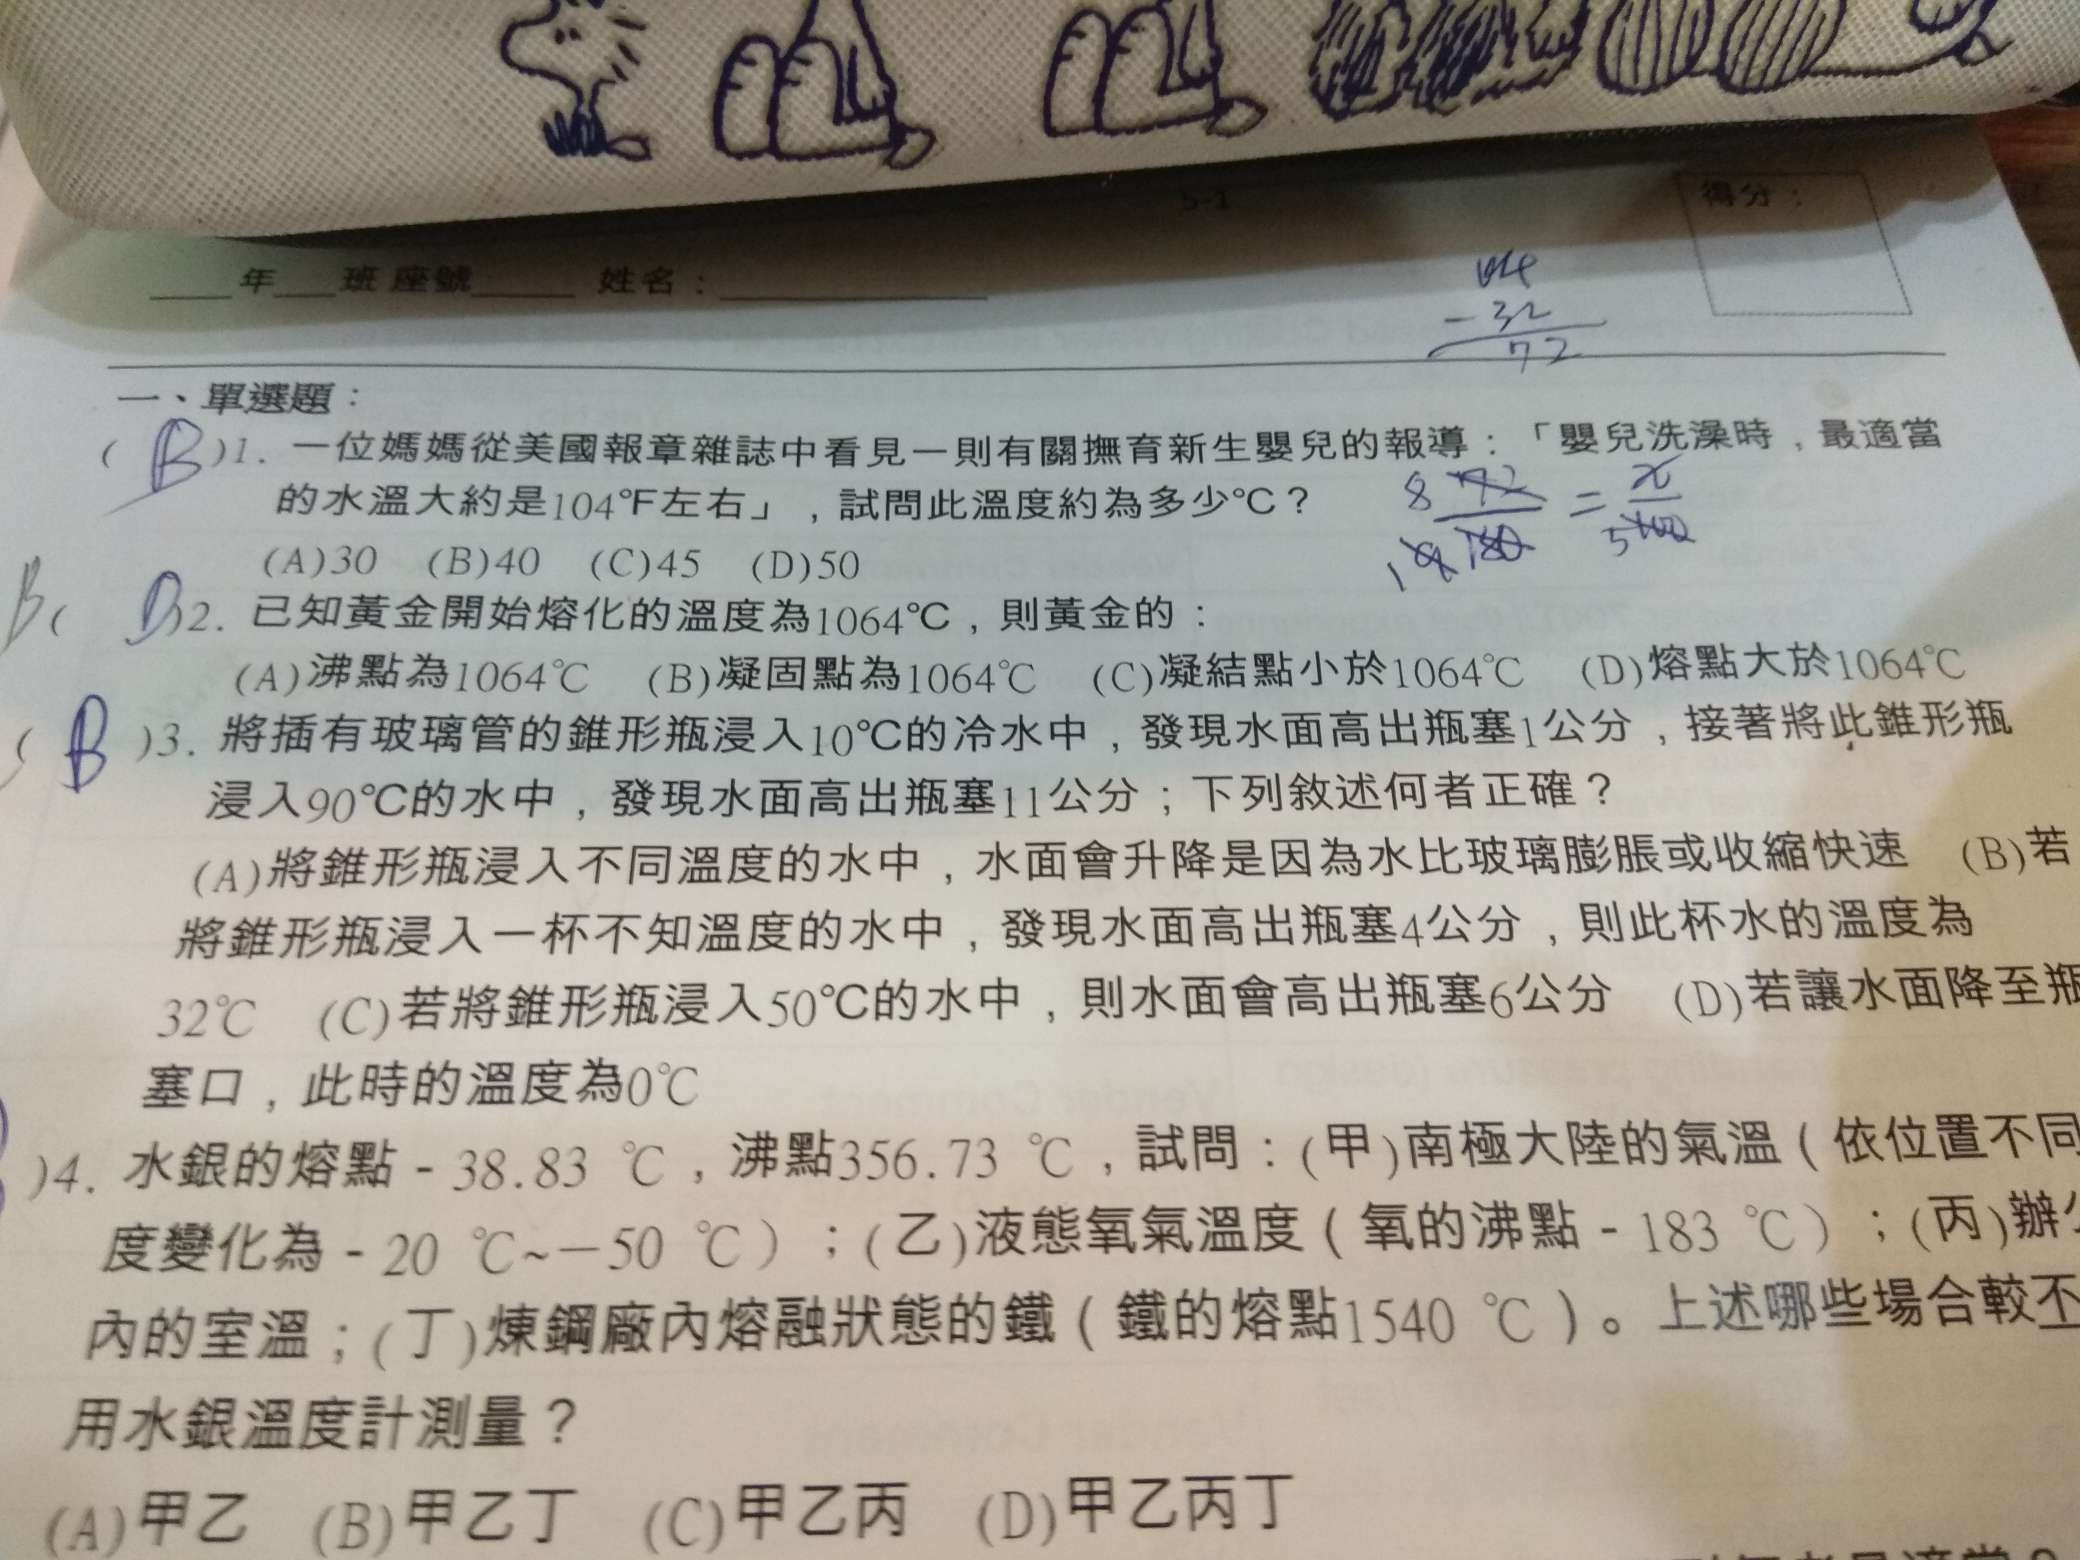 5-1
得分：
年 班 座號 姓名：
104
-32
72
一、單選題：
( B )1. 一位媽媽從美國報章雜誌中看見一則有關撫育新生嬰兒的報導：「嬰兒洗澡時，最適當
的水溫大約是104℉左右」，試問此溫度約為多少℃？
8 72/180 = x/100 5
(A)30 (B)40 (C)45 (D)50
B( D )2. 已知黃金開始熔化的溫度為1064℃，則黃金的：
(A)沸點為1064℃ (B)凝固點為1064℃ (C)凝結點小於1064℃ (D)熔點大於1064℃
( B )3. 將插有玻璃管的錐形瓶浸入10℃的冷水中，發現水面高出瓶塞1公分，接著將此錐形瓶
浸入90℃的水中，發現水面高出瓶塞11公分；下列敘述何者正確？
(A)將錐形瓶浸入不同溫度的水中，水面會升降是因為水比玻璃膨脹或收縮快速 (B)若
將錐形瓶浸入一杯不知溫度的水中，發現水面高出瓶塞4公分，則此杯水的溫度為
32℃ (C)若將錐形瓶浸入50℃的水中，則水面會高出瓶塞6公分 (D)若讓水面降至瓶
塞口，此時的溫度為0℃
)4. 水銀的熔點－38.83 ℃，沸點356.73 ℃，試問：(甲)南極大陸的氣溫（依位置不同
度變化為－20 ℃~－50 ℃）；(乙)液態氧氣溫度（氧的沸點－183 ℃）；(丙)辦公
內的室溫；(丁)煉鋼廠內熔融狀態的鐵（鐵的熔點1540 ℃）。上述哪些場合較不
用水銀溫度計測量？
(A)甲乙 (B)甲乙丁 (C)甲乙丙 (D)甲乙丙丁